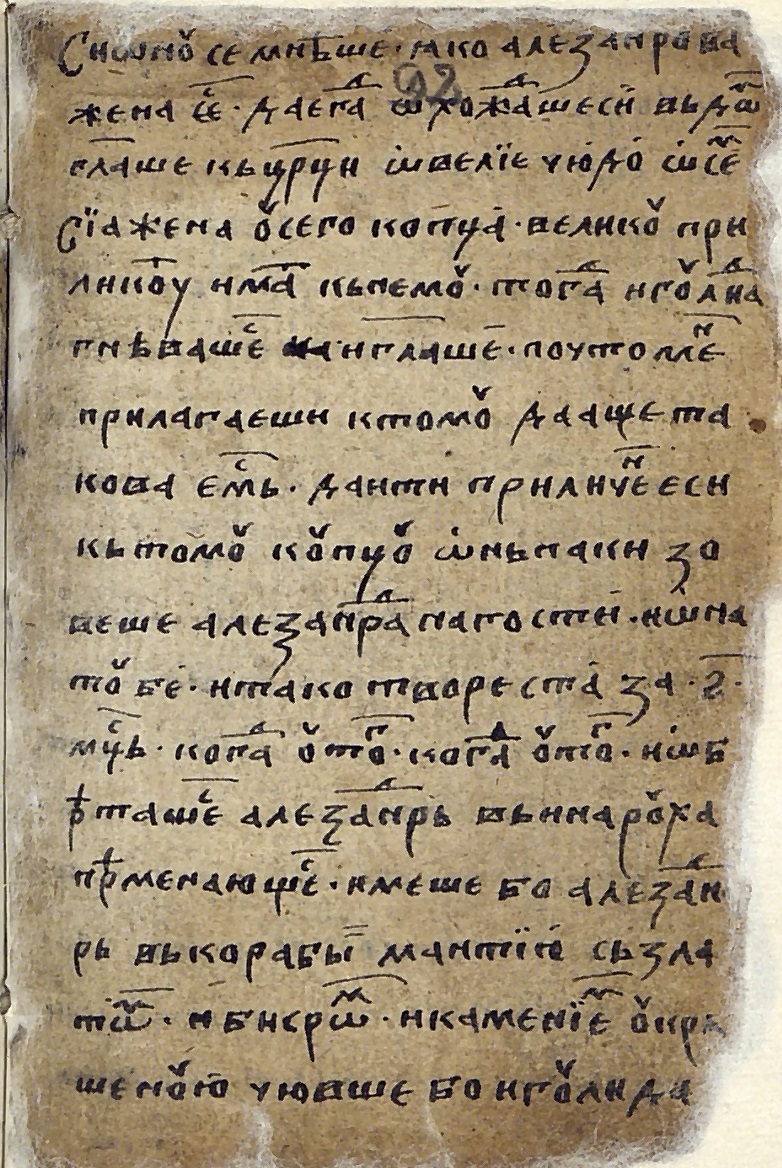 Сиѡно̆ се мнѣше· ꙗко алеꙁанрова
жена е҇е· даегаⷣ ѿхожⷣаше си въдѡⷨ
гл҃аше къцрци ѽ велїе чюдо ѽ сеⷨ
Сїа жена о̆сего копца· велико̆ при
ликоу има к немо̆· тогаⷣ иго̆лⷣна
гнѣвашеⷭ и гл҃аше· поу что меⷩ
прилагаеши ктомо̆ да аще та
кова есⷨмь· да и ти приличеⷩ еси
къ томо̆ ко̆пцо̆ ѽнь паки зо
веше алеꙁанⷣра на гости· и ѽ на
то̆ бе· и тако твореста за ·г҃·
мцⷭь· когаⷣ о̆ тоⷢ· когаⷣ о̆ тоⷢ· и ѡб
рѣташеⷭ алеꙁанⷣрь вь ина ро̆ха
прѣменающеⷭ· имеше бо алеꙁанⷣ
рь вь корабы мантїю сь зла
тѡⷨ· и бисрѡⷨ· и каменїеⷨ о̆кра
шено̆ю чювше бо иго̆лида